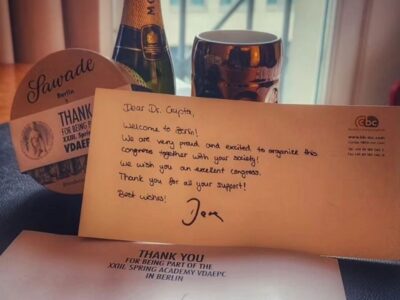 Sawade
Berlin
THANK
FOR BEING
XXIII. Spring
VDAEP
MO
cbc
Dear Dr. Gupta,
Welcome to Berlin!
We are very proud and excited to organize this
congress together with your society!
We wish you an excellent congress.
Thank you for all your support!
Best wishes!
THANK YOU
FOR BEING PART OF THE
XXIII. SPRING ACADEMY VDAEPC
IN BERLIN